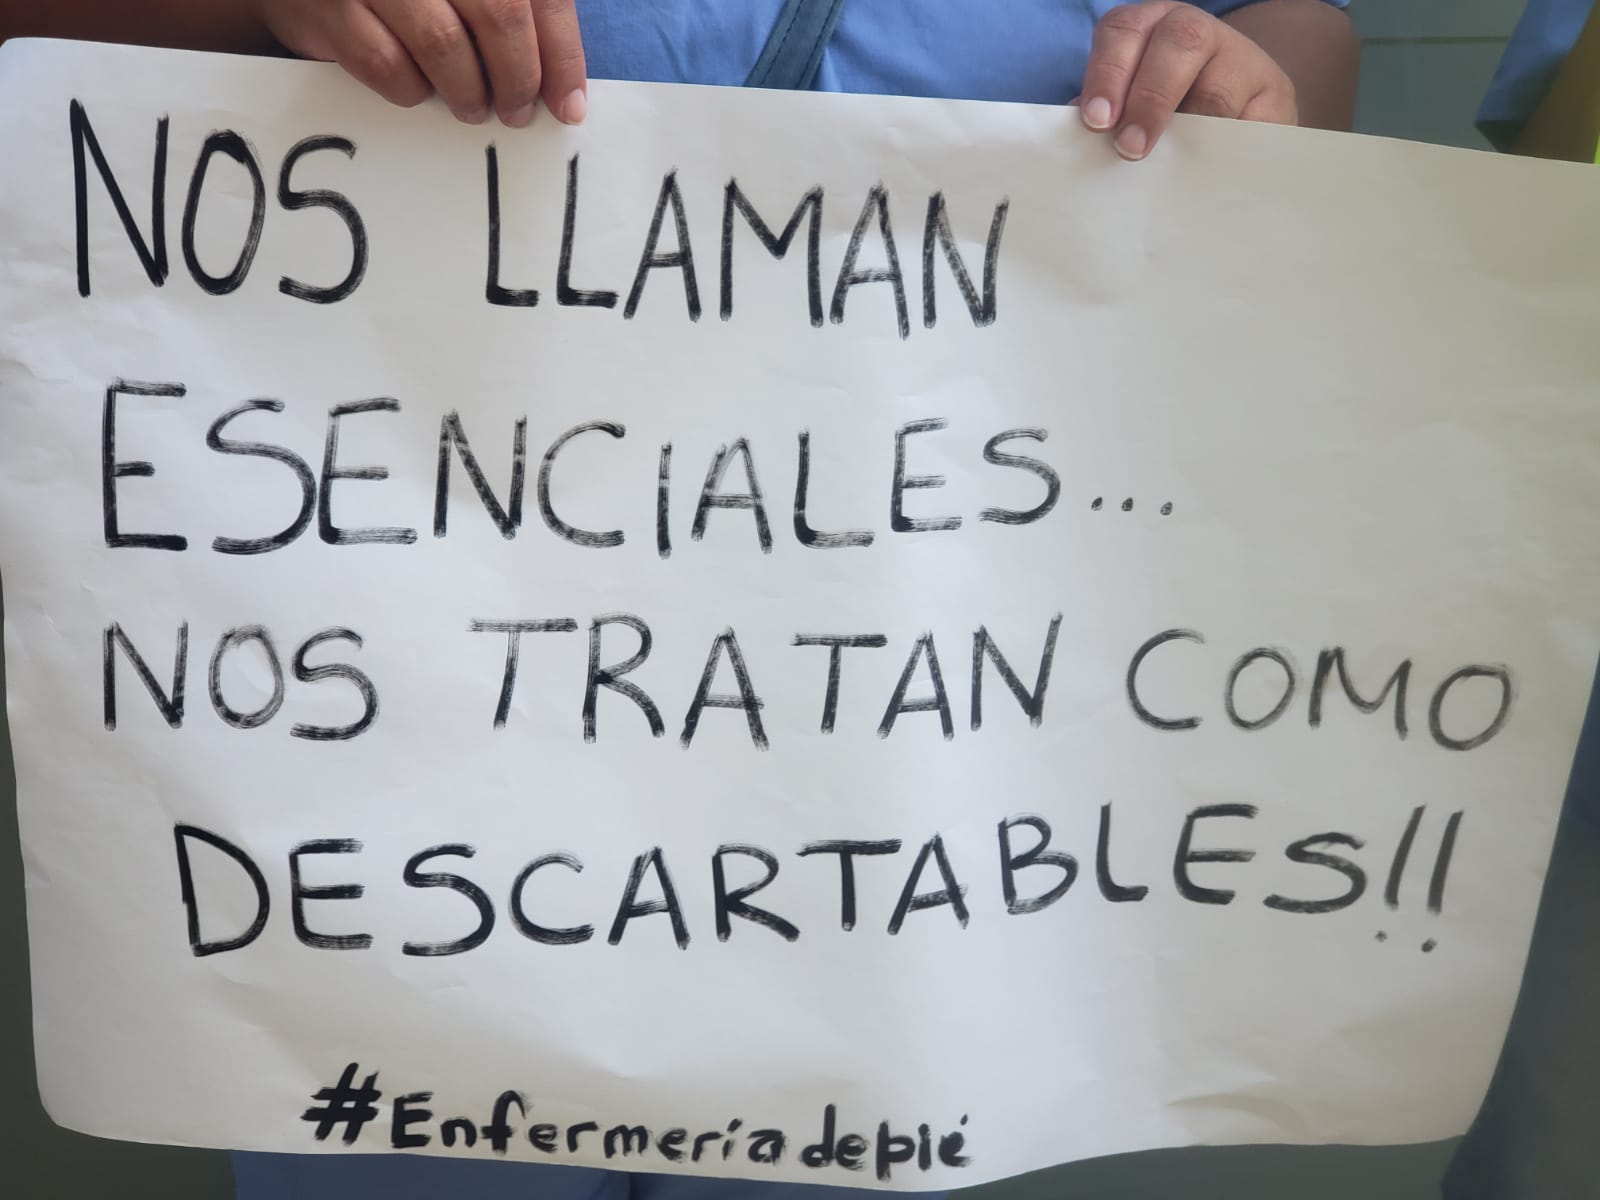 NOS LLAMAN
ESENCIALES...
NOS TRATAN COMO
DESCARTABLES!!
#Enfermeríadepié